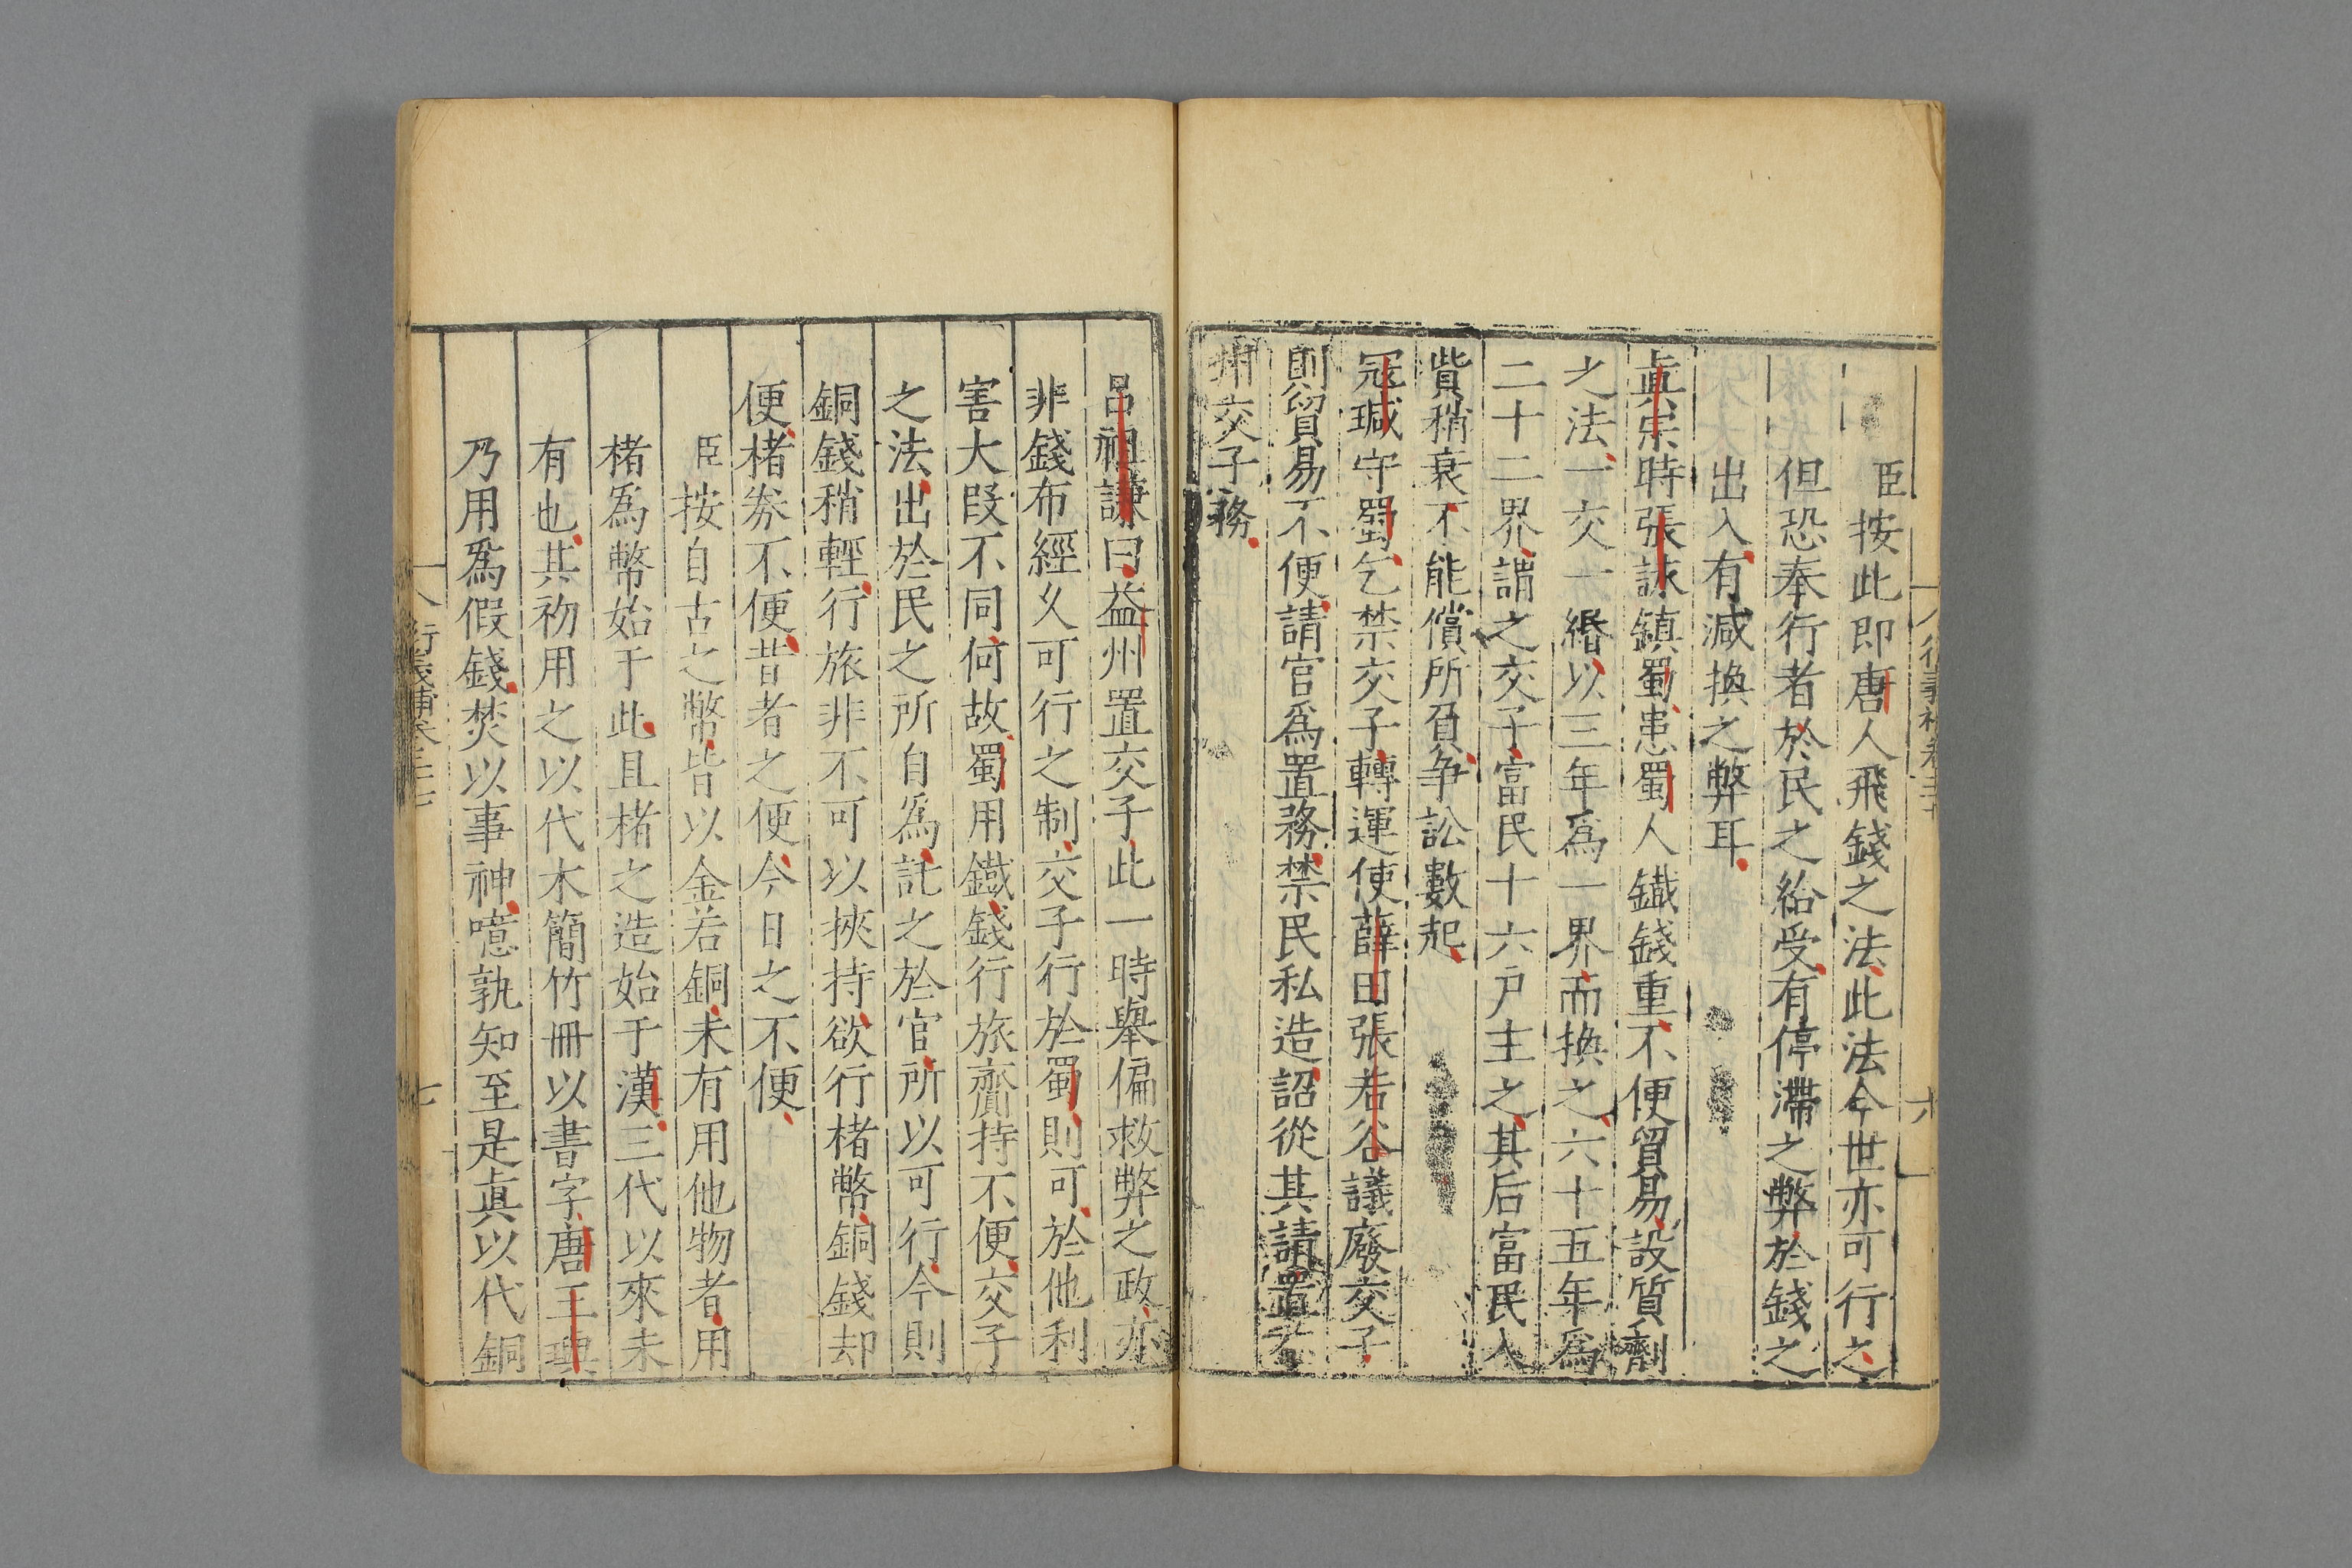 臣按此即唐人飛錢之法此法今世亦可行之
但恐奉行者於民之給受有停滯之弊於錢之
出入有減換之弊耳
真宗時張詠鎮蜀患蜀人鐵錢重不便貿易設質劑
之法一交一緡以三年爲一界而換之六十五年爲
二十二界謂之交子富民十六戶主之其后富民人
貲稍衰不能償所負争訟數起
冦瑊守蜀乞禁交子轉運使薛田張若谷議廢交子
則貿易不便請官爲置務禁民私造詔從其請置
州交子務
呂祖謙曰益州置交子此一時舉偏救弊之政亦
非錢布經乆可行之制交子行於蜀則可於他利
害大段不同何故蜀用鐵錢行旅齎持不便交子
之法出於民之所自爲託之於官所以可行今則
銅錢稍輕行旅非不可以挾持欲行楮幣銅錢却
便楮劵不便昔者之便今日之不便
臣按自古之幣皆以金若銅未有用他物者用
楮爲幣始于此且楮之造始于漢三代以來未
有也其初用之以代木簡竹冊以書字唐王璵
乃用爲假錢焚以事神噫孰知至是眞以代銅
衍義補卷二十七
七